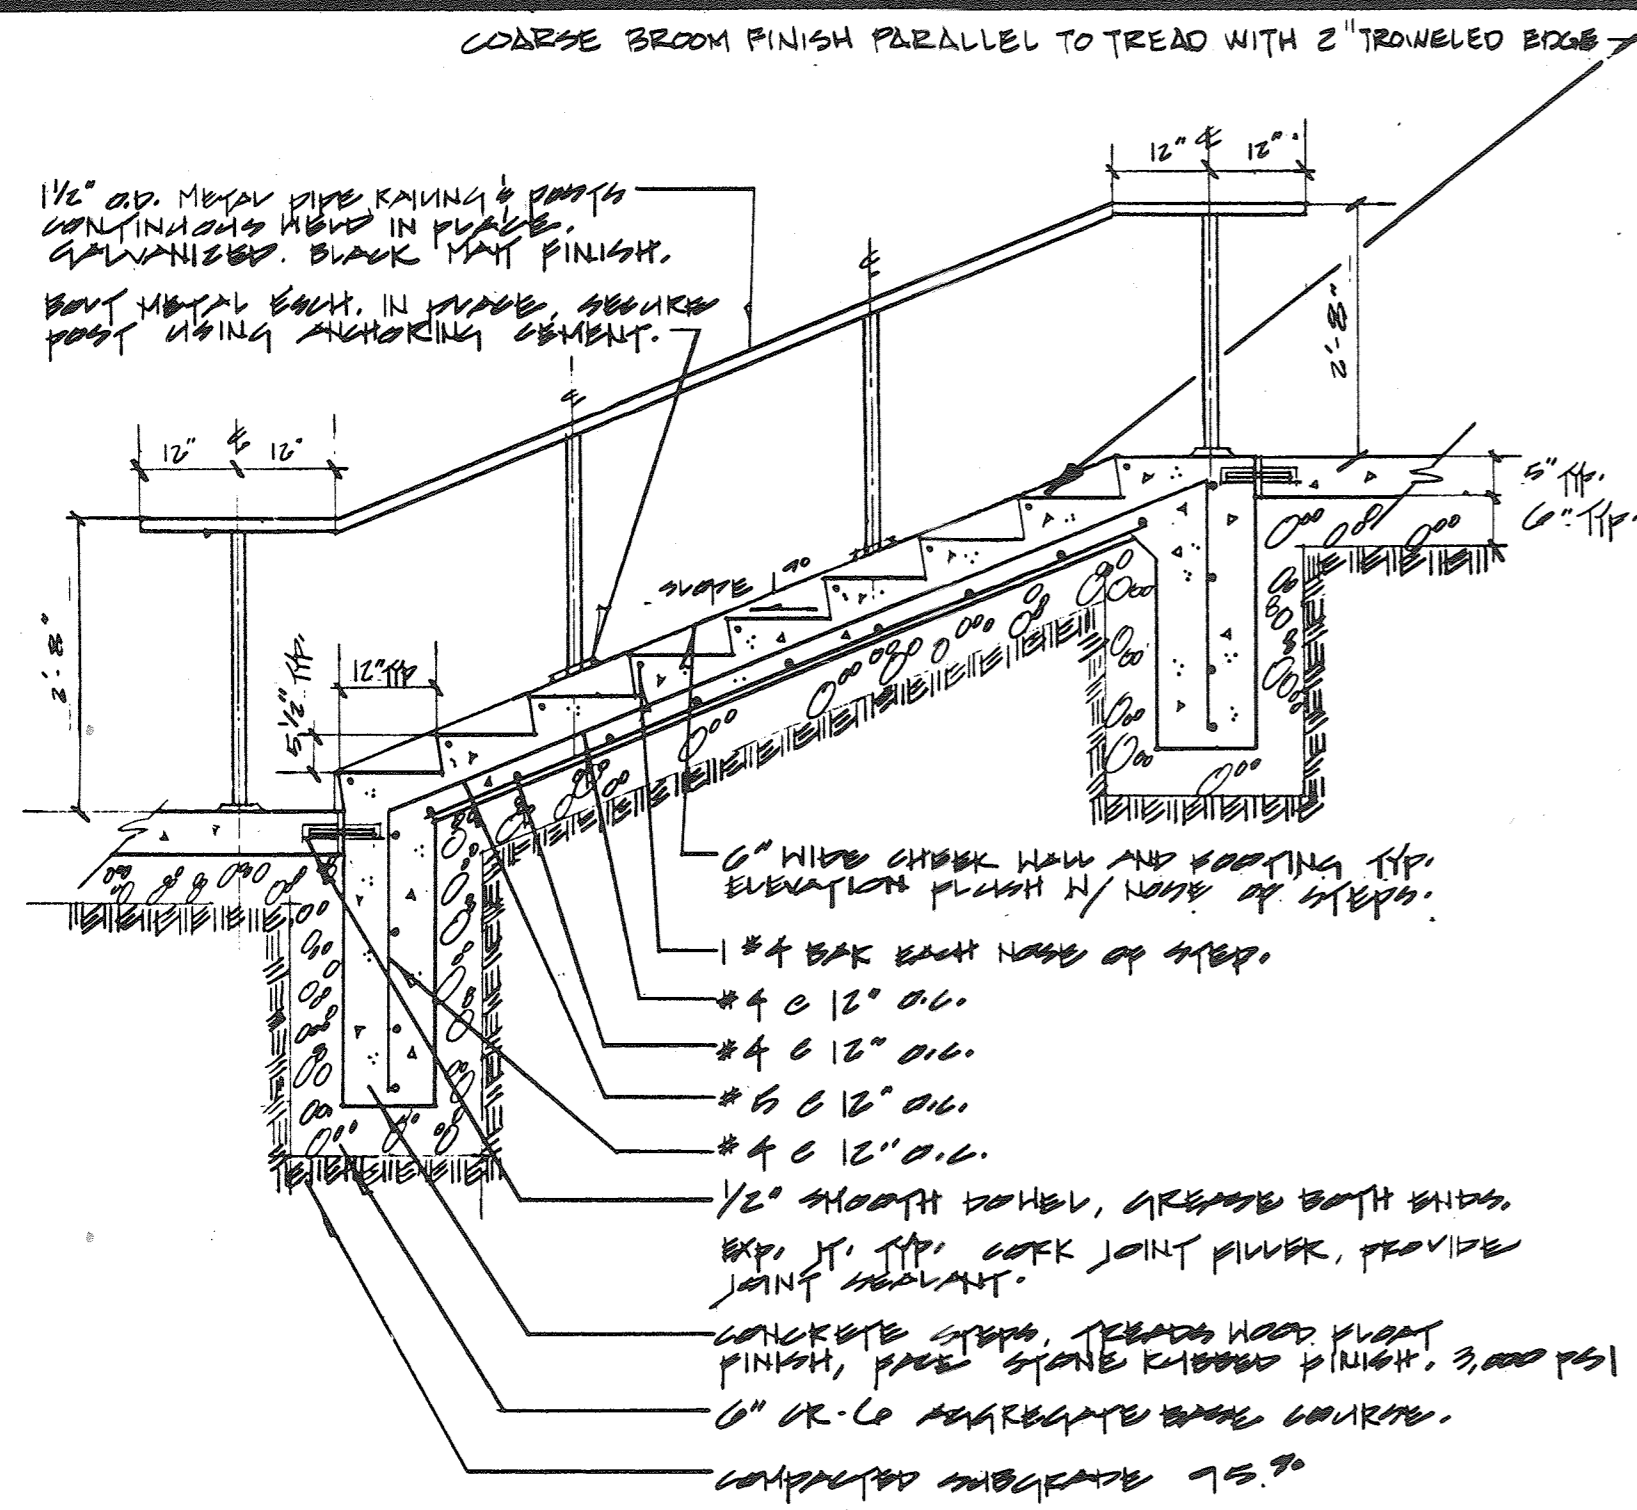 COARSE BROOM FINISH PARALLEL TO TREAD WITH 2" TROWELED EDGE
12" ℄ 12"
1½" O.D. METAL PIPE RAILING & POSTS
CONTINUOUS HELD IN PLACE.
GALVANIZED. BLACK MATT FINISH.
BOLT METAL ESCH. IN PLACE, SECURE
POST USING ANCHORING CEMENT.
℄
2'-8"
℄
12" ℄ 12"
5" TYP.
6" TYP.
SLOPE 1%
2'-8"
5½" TYP.
12" TYP
6" WIDE CHEEK WALL AND FOOTING TYP.
ELEVATION FLUSH W/ NOSE OF STEPS.
1 #4 BAR EACH NOSE OF STEP.
#4 @ 12" O.C.
#4 @ 12" O.C.
#5 @ 12" O.C.
#4 @ 12" O.C.
1/2" SMOOTH DOWEL, GREASE BOTH ENDS.
EXP. JT. TYP. CORK JOINT FILLER, PROVIDE
JOINT SEALANT.
CONCRETE STEPS, TREADS WOOD FLOAT
FINISH, FACE STONE RUBBED FINISH. 3,000 PSI
6" CR-6 AGGREGATE BASE COURSE.
COMPACTED SUBGRADE 95.%